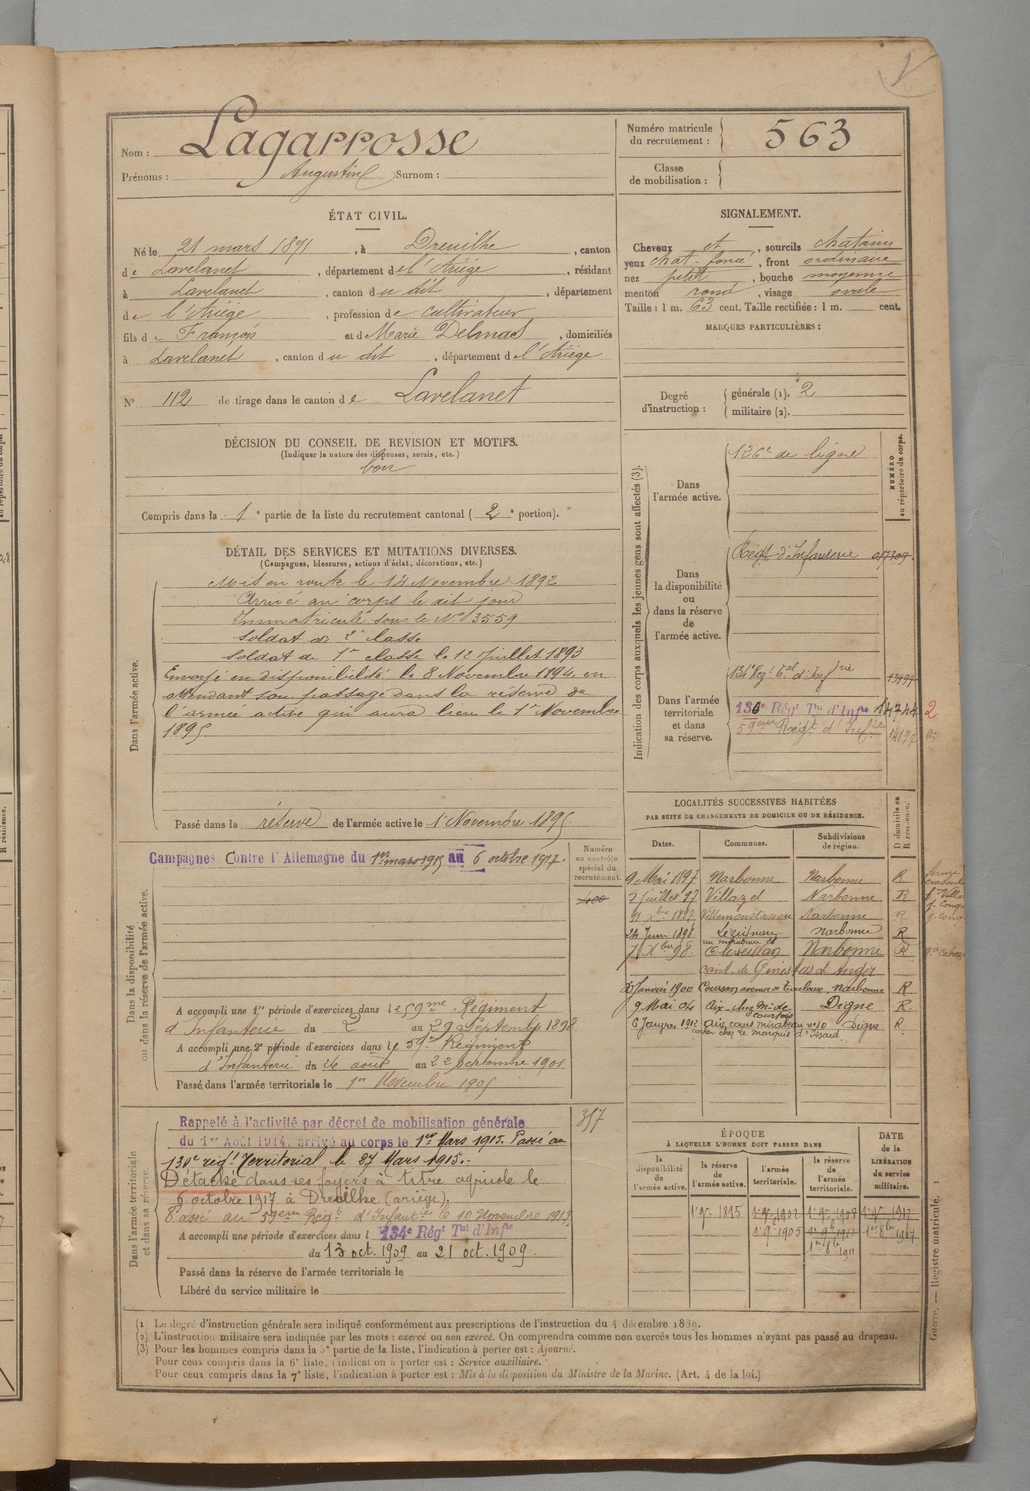 Nom : Lagarrosse
Prénoms : Augustin Surnom :
Numéro matricule du recrutement : 563
Classe de mobilisation :
ÉTAT CIVIL.
Né le 21 mars 1871, à Dreuilhe, canton
de Lavelanet, département de l'Ariége, résidant
à Lavelanet, canton du dit, département
de l'Ariége, profession de cultivateur
fils de François et de Marie Delmas, domiciliés
à Lavelanet, canton du dit, département de l'Ariége
N° 112 de tirage dans le canton de Lavelanet
SIGNALEMENT.
Cheveux et, sourcils chatains
yeux chat. foncé, front ordinaire
nez petit, bouche moyenne
menton rond, visage ovale
Taille : 1 m. 63 cent. Taille rectifiée : 1 m. cent.
MARQUES PARTICULIÈRES :
Degré d'instruction :
générale (1). 2
militaire (2).
DÉCISION DU CONSEIL DE REVISION ET MOTIFS.
(Indiquer la nature des dispenses, sursis, etc.)
bon
Compris dans la 1e partie de la liste du recrutement cantonal (2e portion).
DÉTAIL DES SERVICES ET MUTATIONS DIVERSES.
(Campagnes, blessures, actions d'éclat, décorations, etc.)
Dans l'armée active.
Mis en route le 14 Novembre 1892
Arrivé au corps le dit jour
Immatriculé sous le No 3559
Soldat de 2e classe
Soldat de 1re classe le 12 Juillet 1893
Envoyé en disponibilité le 8 Novembre 1894 en
attendant son passage dans la réserve de
l'armée active qui aura lieu le 1er Novembre
1895
Passé dans la réserve de l'armée active le 1er Novembre 1895
Indication des corps auxquels les jeunes gens sont affectés (3).
NUMÉRO au répertoire du corps.
Dans l'armée active.
126e de ligne
Dans la disponibilité ou dans la réserve de l'armée active.
Régt d'Infanterie
Dans l'armée territoriale et dans sa réserve.
134e Régt Tal d'Infrie 13999
130e Régt Tal d'Infie 14744 2
59ème Régt d'Infie
Dans la disponibilité ou dans la réserve de l'armée active.
Campagnes Contre l'Allemagne du 1er mars 1915 au 6 octobre 1917.
Numéro au contrôle spécial du recrutement.
400
A accompli une 1re période d'exercices dans le 59me Régiment
d'Infanterie du 2 au 29 Septembre 1898
A accompli une 2e période d'exercices dans le 59e Régiment
d'Infanterie du 26 août au 22 septembre 1901
Passé dans l'armée territoriale le 1er Novembre 1905
LOCALITÉS SUCCESSIVES HABITÉES
PAR SUITE DE CHANGEMENTS DE DOMICILE OU DE RÉSIDENCE.
Dates. Communes. Subdivisions de région. D domicile ou R résidence.
9 Mai 1897 Narbonne Narbonne R
2 juillet 97 Narbonne R
Narbonne R
24 Juin 1898 Lézignan Narbonne R
7 Xbre 98 Narbonne R
cant. de Ginestas d'Aude
Janvier 1900 Narbonne R
9 Mai 04 Aix chez Mr de Digne R.
6 Janvier 1912 Aix cours mirabeau no 10 Digne R
cocher chez le marquis d'Isoard
Dans l'armée territoriale et dans sa réserve.
Rappelé à l'activité par décret de mobilisation générale
du 1er Août 1914, arrivé au corps le 1er Mars 1915. Passé au
130e régt Territorial le 27 Mars 1915.
Détaché dans ses foyers à titre agricole le
6 octobre 1917 à Dreuilhe (ariège).
Passé au 59ème Régt d'Infantrie le 10 Novembre 1917
A accompli une période d'exercices dans l 134e Régt Tal d'Infie
du 13 oct. 1909 au 21 oct. 1909.
Passé dans la réserve de l'armée territoriale le
Libéré du service militaire le
357
ÉPOQUE
À LAQUELLE L'HOMME DOIT PASSER DANS
la disponibilité de l'armée active. la réserve de l'armée active. l'armée territoriale. la réserve de l'armée territoriale.
DATE de la LIBÉRATION du service militaire.
1er 9bre 1895 1er 9bre 1902 1er 9bre 1908 1er 9bre 1917
1er 9bre 1905 1er 9bre 1911
1er 8bre 1911
(1) Le degré d'instruction générale sera indiqué conformément aux prescriptions de l'instruction du 4 décembre 1889.
(2) L'instruction militaire sera indiquée par les mots : exercé ou non exercé. On comprendra comme non exercés tous les hommes n'ayant pas passé au drapeau.
(3) Pour les hommes compris dans la 5e partie de la liste, l'indication à porter est : Ajourné.
Pour ceux compris dans la 6e liste, l'indication à porter est : Service auxiliaire.
Pour ceux compris dans la 7e liste, l'indication à porter est : Mis à la disposition du Ministre de la Marine. (Art. 4 de la loi.)
Guerre. — Registre matricule. 1